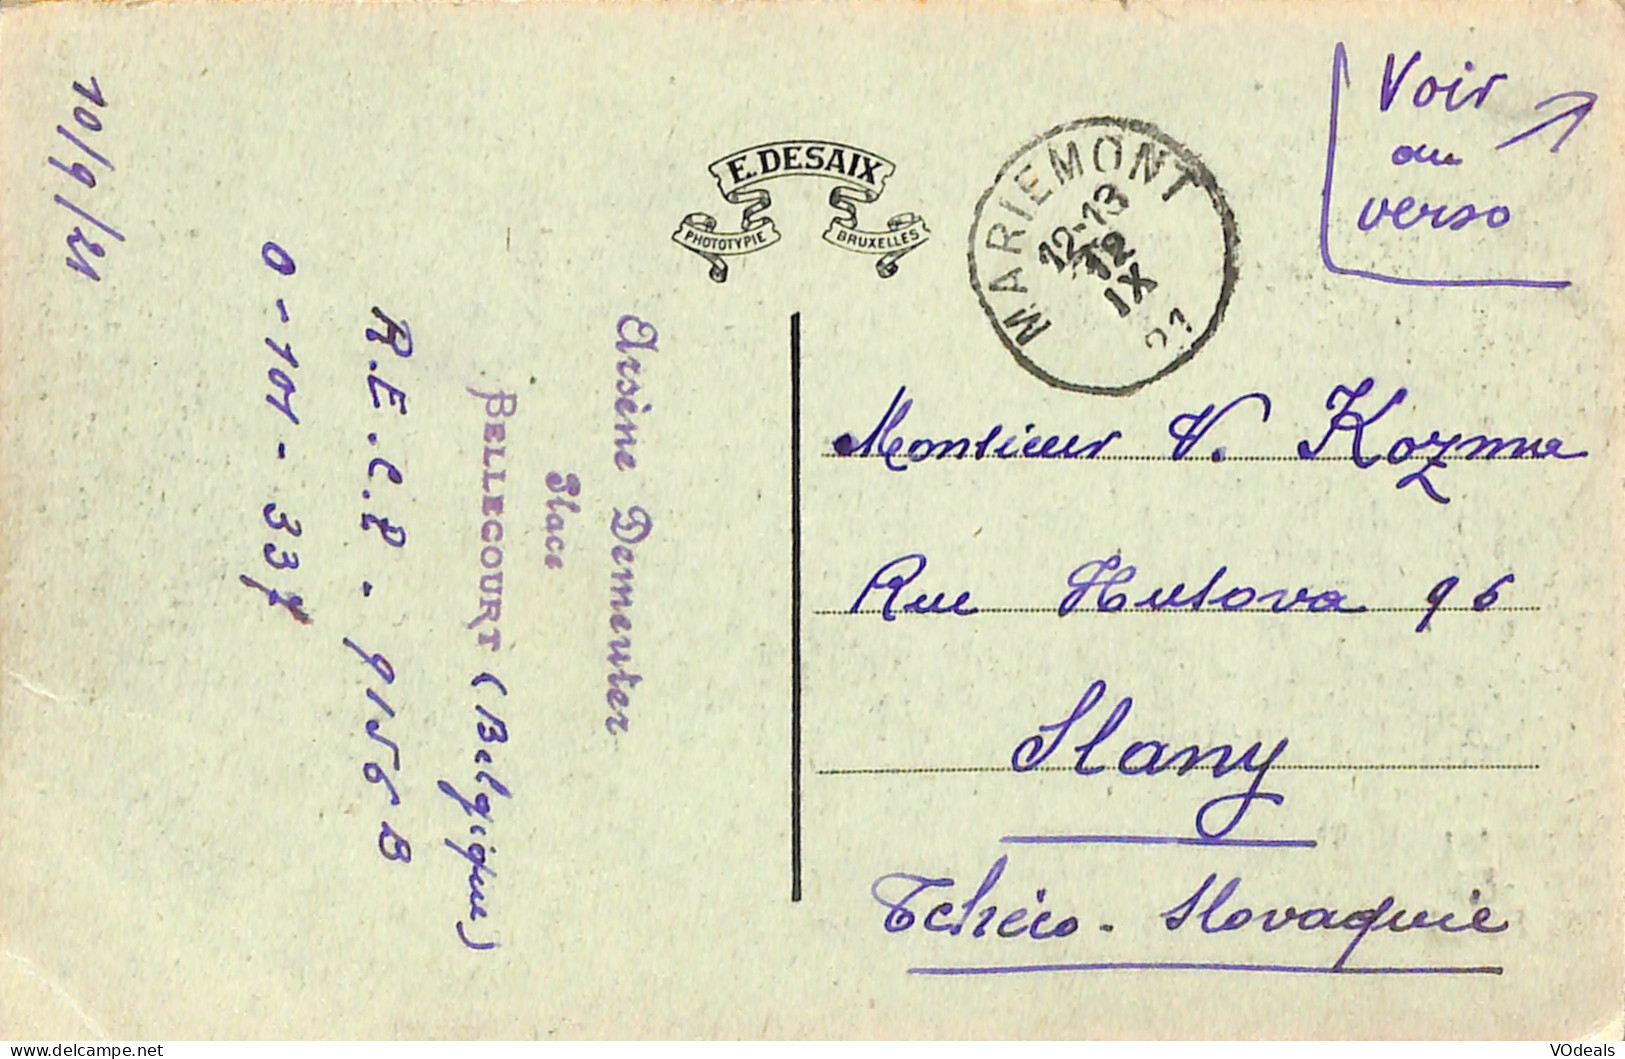 10/9/21
0-101-337
R.E.C.P. 9156 B
Arsène Demeuter
Place
BELLECOURT (Belgique)
E. DESAIX
PHOTOTYPIE BRUXELLES
MARIEMONT
12-13
12
IX
21
Voir
au
verso
Monsieur V. Kozma
Rue Husova 96
Slany
Tchéco-Slovaquie
VOdeals